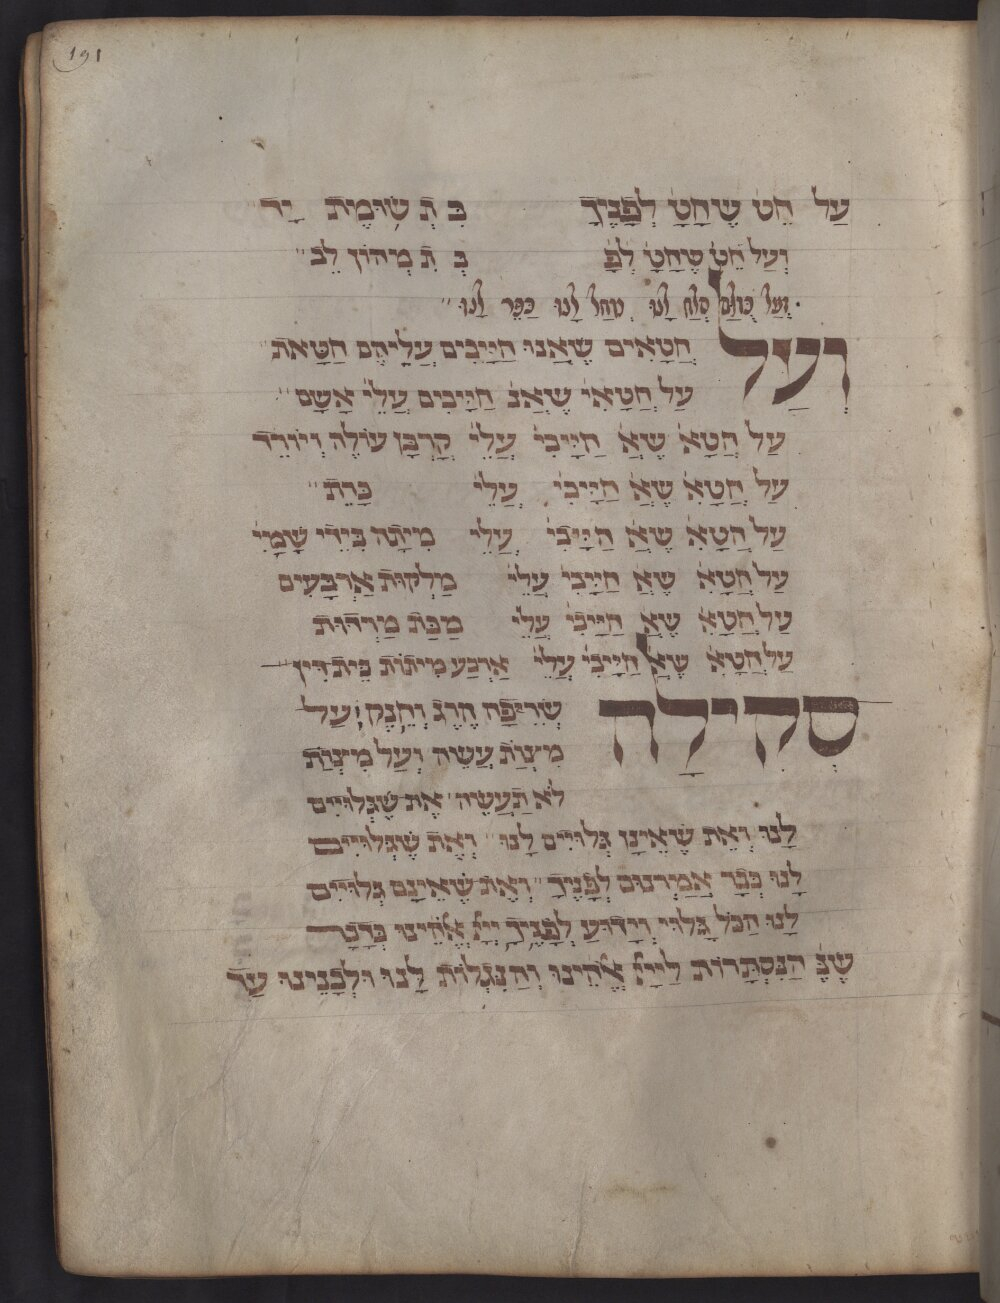 191
עַל חֵט שֶׁיחָטָ לְפָנֶיךָ בִּ תְ שׂוּמֶת יָד
וְעַל חֵט שֶׁחָטָ לְפָ בְּ תִ מְהוֹן לֵב
וְעַל כּוּלָם סְלַח לָנוּ מְחַל לָנוּ כַּפֵּר לָנוּ
וְעַל חֲטָאִים שֶׁאָנוּ חַיָּיבִים עֲלֵיהֶם חַטָּאת
עַל חֲטָאִי שֶׁאָנ חַיָּיבִים עֲלֵי אָשָׁם
עַל חֲטָא שֶׁאָ חַיָּיבִי עֲלֵי קָרְבָּן עוֹלֶה וְיוֹרֵד
עַל חֲטָאִ שֶׁאָ חַיָּיבִי עֲלֵי כָּרֵת
עַל חֲטָאִ שֶׁאָ חַיָּיבִי עֲלֵי מִיתָה בִּידֵי שָׁמָיִ
עַל חֲטָאִ שֶׁאָ חַיָּיבִי עֲלֵי מַלְקוּת אַרְבָּעִים
עַל חֲטָאִ שֶׁאָ חַיָּיבִי עֲלֵי מַכַּת מַרְדּוּת
עַל חֲטָאִ שֶׁאָ חַיָּיבִי עֲלֵי אַרְבַּע מִיתוֹת בֵּית דִּין
סְקִילָה שְׂרֵיפָה הֶרֶג וְחֶנֶק וְעַל
מִצְוֹת עֲשֵׂה וְעַל מִצְוֹת
לֹא תַעֲשֶׂה אֶת שֶׁגְּלוּיִים
לָנוּ וְאֶת שֶׁאֵינָן גְּלוּיִים לָנוּ וְאֶת שֶׁגְּלוּיִים
לָנוּ כְּבָר אֲמַרְנוּם לְפָנֶיךָ וְאֶת שֶׁאֵינָם גְּלוּיִים
לָנוּ הַכֹּל גָּלוּי וְיָדוּעַ לְפָנֶיךָ יְיָ אֱלֹהֵינוּ כַּדָּבָר
שֶׁנֶּ הַנִּסְתָּרוֹת לַייָ אֱלֹהֵינוּ וְהַנִּגְלוֹת לָנוּ וּלְבָנֵינוּ עַד